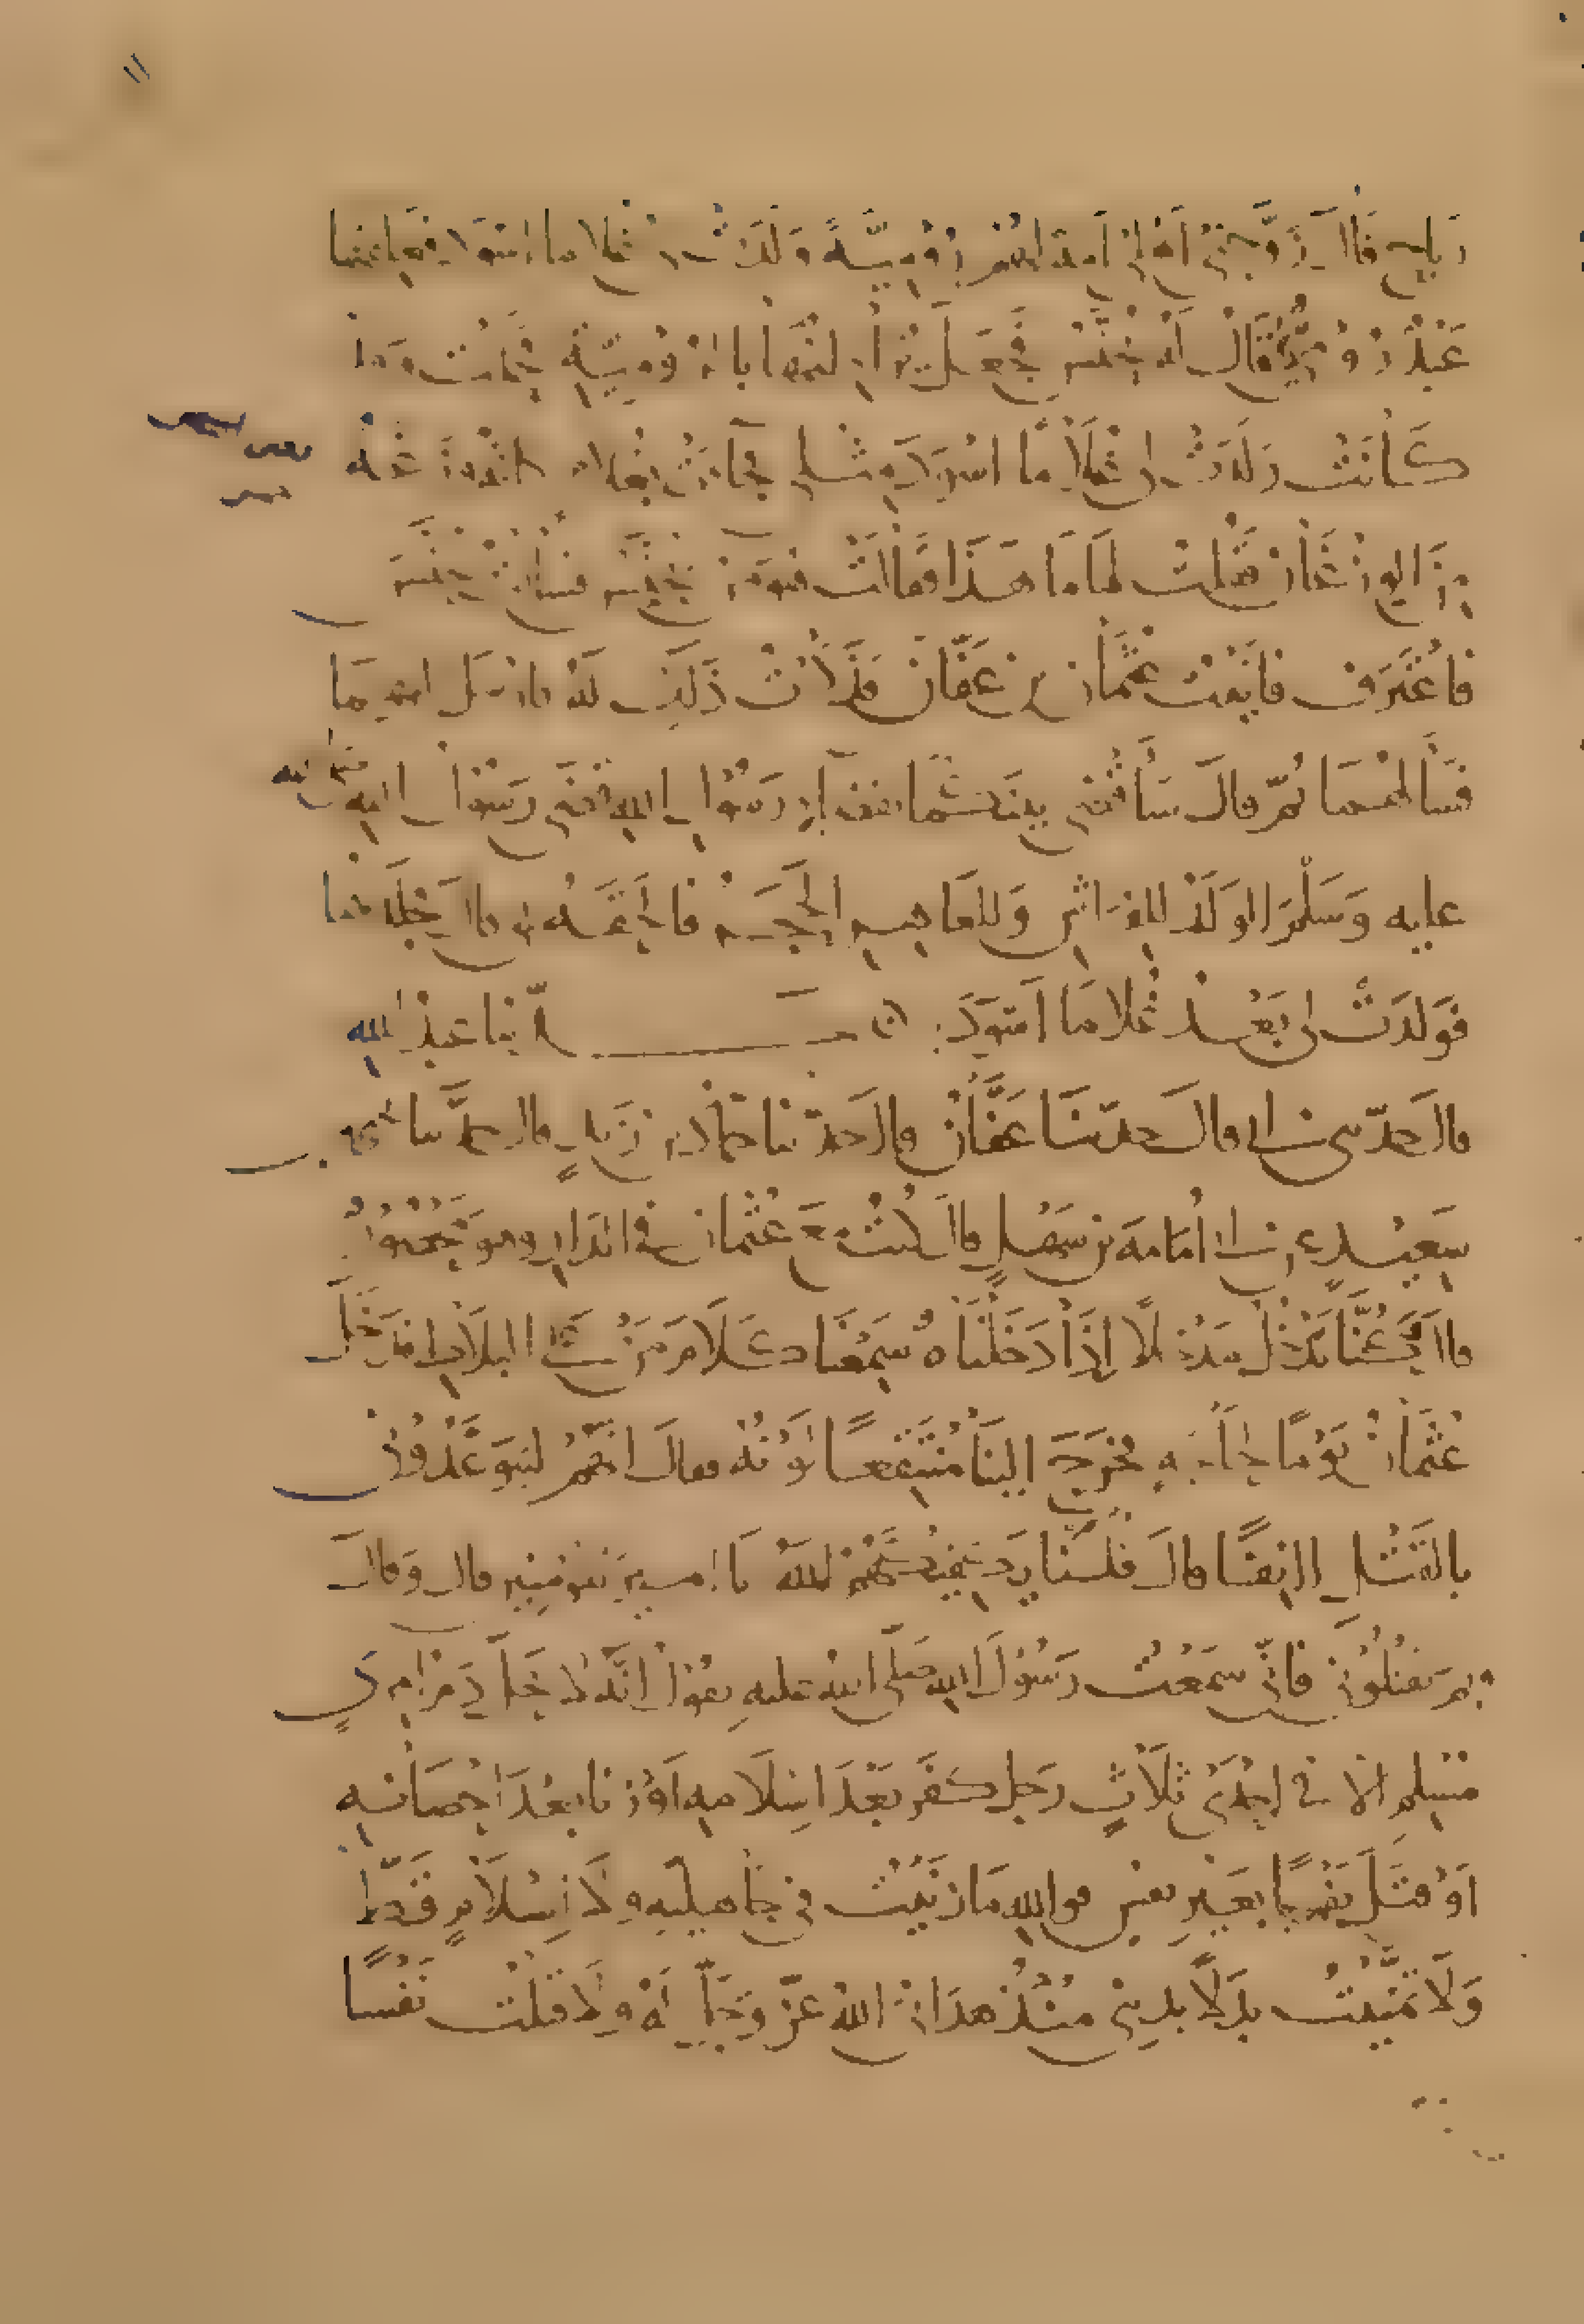 رباح قال زوجني اهلي امة لهم رومية ولدت لي غلاما اسود فعلقها
عبد رومي يقال له يحنس فجعل يراطنها بالرومية فحملت وقد
كانت ولدت لي غلاما اسود مثلي فجاءت بغلام كانه وزغة
من الوزغان فقلت لها ما هذا فقالت هو من يحنس فسالت يحنس
فاعترف فاتيت عثمان بن عفان فذكرت ذلك له فارسل اليهما
فسالهما ثم قال ساقضي بينكما بقضاء رسول الله قضى رسول الله صلى الله
عليه وسلم الولد للفراش وللعاهر الحجر فالحقه بي قال فجلدهما
فولدت لي بعد غلاما اسود حدثنا عبد الله
قال حدثني ابي قال حدثنا عفان قال حدثنا حماد بن زيد قال حدثنا يحيى بن
سعيد عن ابي امامة بن سهل قال كنت مع عثمان في الدار وهو محصور
قال وكنا ندخل مدخلا اذا دخلناه سمعنا كلام من على البلاط فدخل
عثمان يوما لحاجة فخرج الينا منتقعا لونه فقال انهم ليتوعدوني
بالقتل انفا قال قلنا يكفيكهم الله يا امير المؤمنين قال وقال
وبم يقتلوني فاني سمعت رسول الله صلى الله عليه يقول انه لا يحل دم امرئ
مسلم الا في احدى ثلاث رجل كفر بعد اسلامه او زنا بعد احصانه
او قتل نفسا بغير نفس فوالله ما زنيت في جاهلية ولا اسلام قط
ولا تمنيت بدلا بديني منذ هداني الله عز وجل له ولا قتلت نفسا